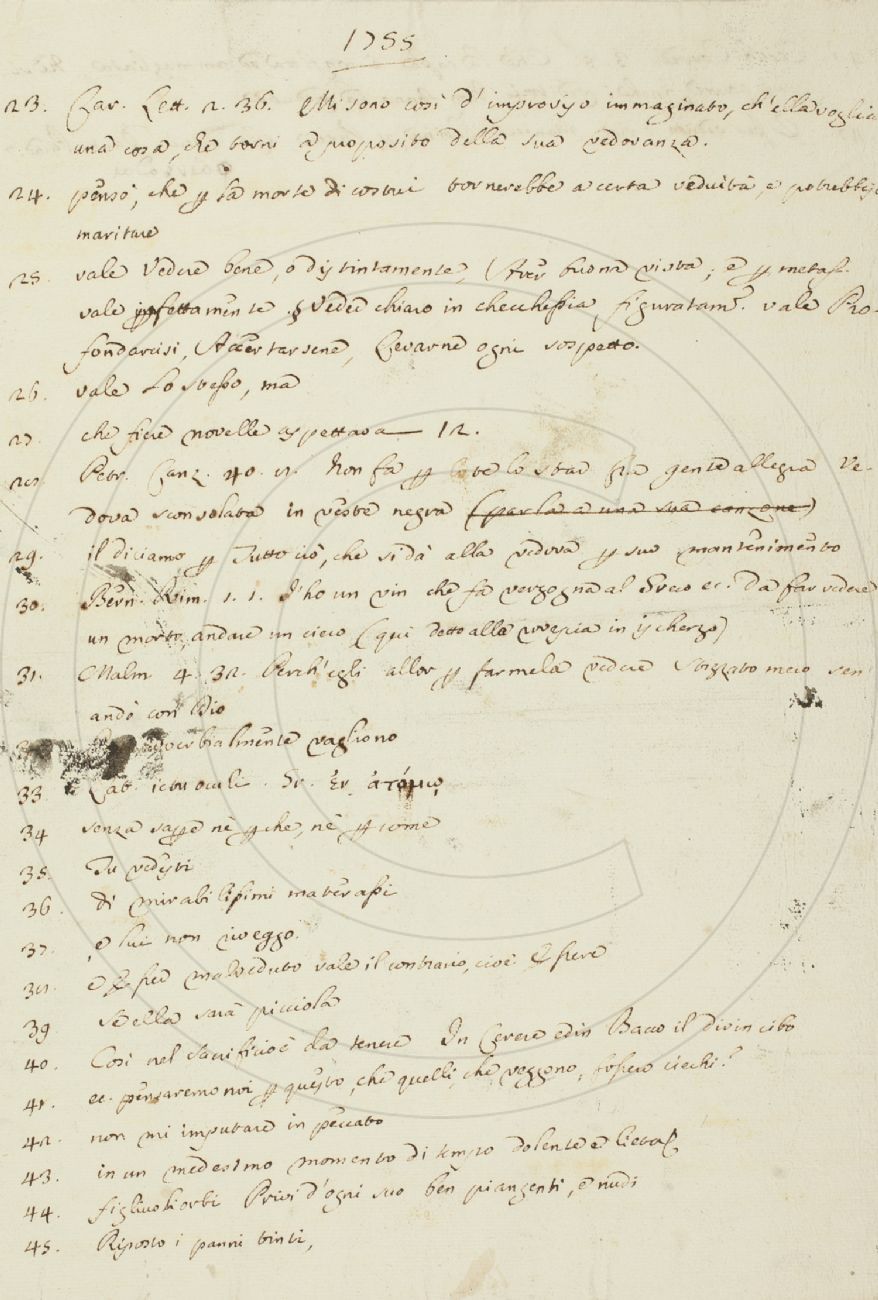 1755
23. Car. Lett. 2. 36. Mi sono così d'improviso immaginato, ch'ella voglia
una cosa, che torni a proposito della sua vedovanza.
24. pensò, che per la morte di costui tornerebbe a certa veduità, e potrebbesi
maritare
25. vale Vedere bene, o distintamente, Aver buona vista; e per metaf.
vale perfettamente. § Veder chiaro in checchessia, figuratam. vale Pro-
fondarcisi, Accertarsene, Levarne ogni sospetto.
26. vale Lo stesso, ma
27 che fiere novelle aspettava — 12.
28. Petr. Canz. 40. 8. Non fa per te lo star fra gente allegra Ve-
dova sconsolata in veste negra (parla a una sua canzone)
29. il diciamo per Tutto ciò, che si dà alla vedova per suo mantenimento
30. Bern. Rim. 1. 1. I'ho un vin che fa vergogna al Greco ec. Da far vedere
un morto, andare un cieco (qui detto alla in ischerzo)
31. Malm. 4. 32. Perch'egli allor per farmela vedere Stizzato meco sen
andò con Dio
vagliono
33 Lat. ictu oculi. Gr. ἐν ἀτόμῳ
34 senza saper nè perche, nè per come
35. Tu vedesti
36. di mirabilissimi materassi
37. e lui non veggo.
38. e Esser malveduto vale il contrario, cioè Essere
39 se ella sarà picciola
40. Così nel Sacrificio è da tenere In Cerere ed in Bacco il divin cibo
41. ec. pensaremo noi per questo, che quelli, che veggono, fossero ciechi?
42. non mi imputare in peccato
43. in un medesimo momento di tempo dolente e lieta
44. figliuoli orbi Privi d'ogni suo ben piangenti, e nudi
45. Riposto i panni tinti,